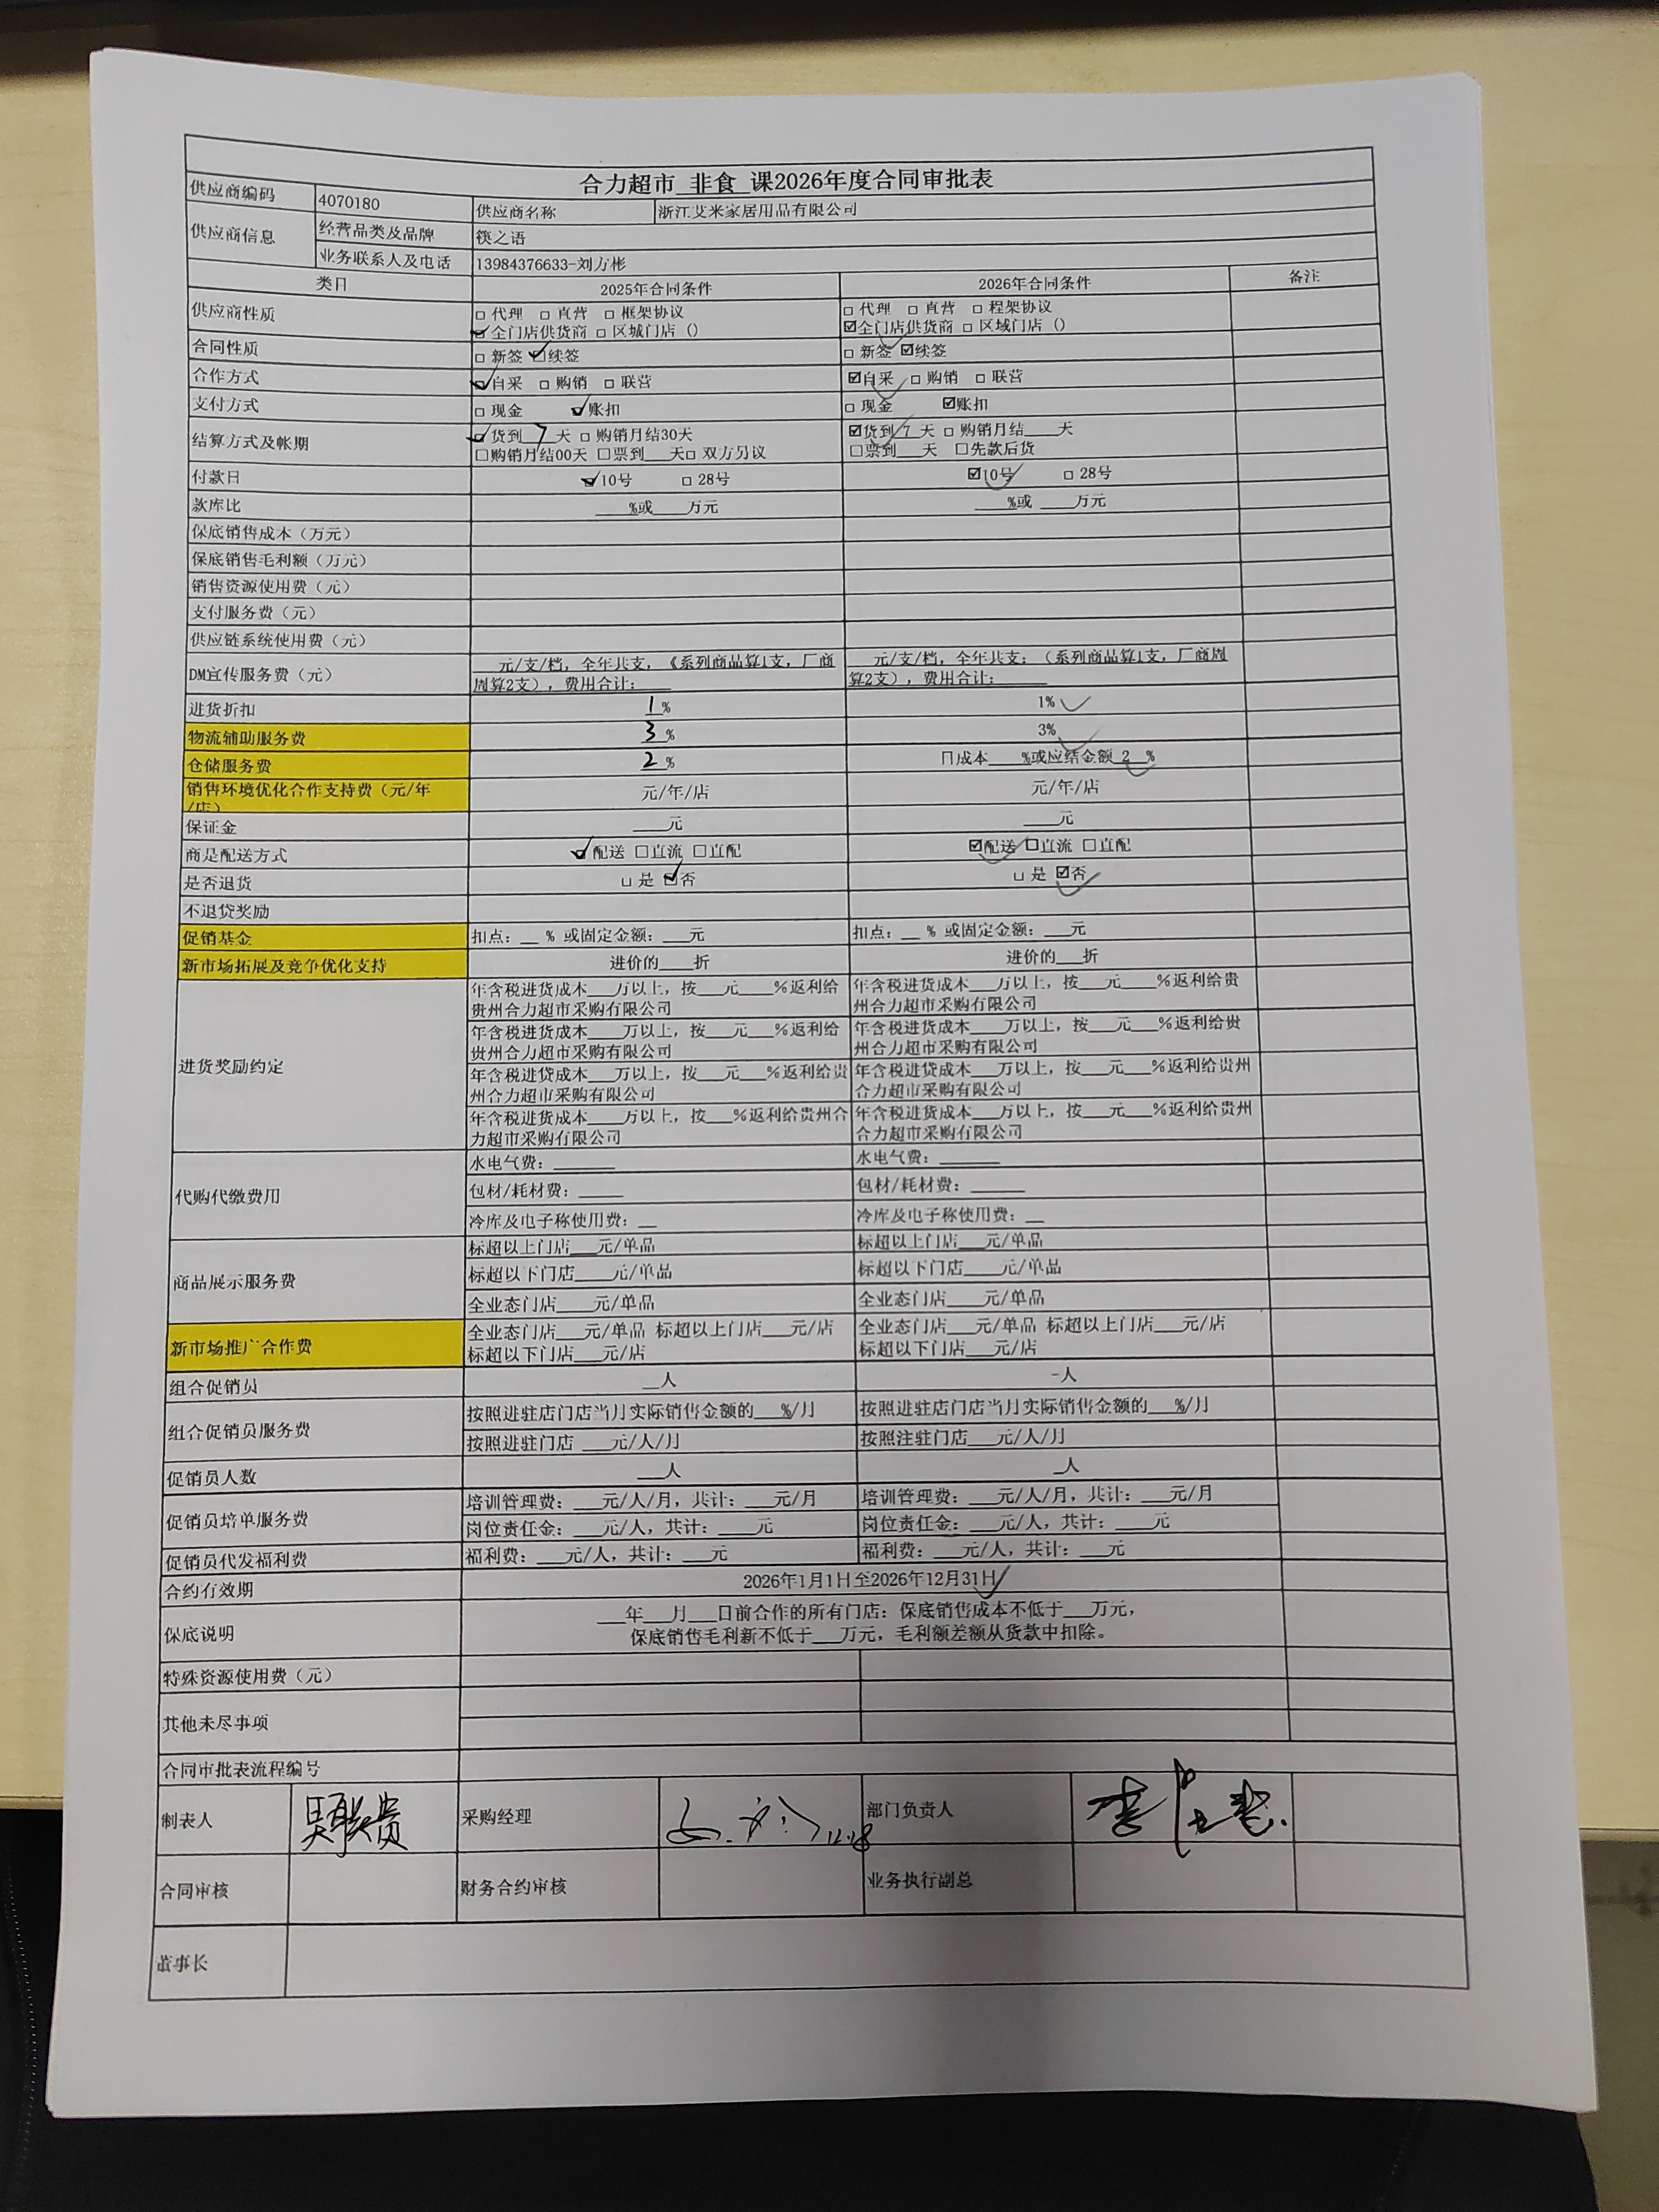 合力超市 非食 课2026年度合同审批表
供应商编码 4070180 供应商名称 浙江艾米家居用品有限公司
供应商信息 经营品类及品牌 筷之语
业务联系人及电话 13984376633-刘方彬
类目 2025年合同条件 2026年合同条件 备注
供应商性质 □ 代理 □ 直营 □ 框架协议 □ 代理 □ 直营 □ 程架协议
☑全门店供货商 □ 区城门店（） ☑全门店供货商 □ 区域门店（）
合同性质 □ 新签 ☑续签 □ 新签 ☑续签
合作方式 ☑自采 □ 购销 □ 联营 ☑自采 □ 购销 □ 联营
支付方式 □ 现金 ☑账扣 □ 现金 ☑账扣
结算方式及帐期 ☑货到 7 天 □ 购销月结30天 ☑货到 7 天 □ 购销月结____天
□购销月结00天 □票到___天□ 双方另议 □票到___天 □先款后货
付款日 ☑10号 □ 28号 ☑10号 □ 28号
款库比 ____%或____万元 ____%或 ____万元
保底销售成本（万元）
保底销售毛利额（万元）
销售资源使用费（元）
支付服务费（元）
供应链系统使用费（元）
DM宣传服务费（元） ___元/支/档，全年共支，《系列商品算1支，厂商 ___元/支/档，全年共支；（系列商品算1支，厂商周
周算2支），费用合计：____ 算2支），费用合计：_____
进货折扣 1% 1%
物流辅助服务费 3% 3%
仓储服务费 2% □成本____%或应结金额 2 %
销售环境优化合作支持费（元/年 元/年/店 元/年/店
/店）
保证金 ____元 ____元
商是配送方式 ☑配送 □直流 □直配 ☑配送 □直流 □直配
是否退货 □ 是 ☑否 □ 是 ☑否
不退贷奖励
促销基金 扣点：__ % 或固定金额：___元 扣点：__ % 或固定金额：___元
新市场拓展及竞争优化支持 进价的____折 进价的___折
进货奖励约定 年含税进货成本____万以上，按___元____%返利给 年含税进货成本___万以上，按___元____%返利给贵
贵州合力超市采购有限公司 州合力超市采购有限公司
年含税进货成本____万以上，按___元___%返利给 年含税进货成本___万以上，按___元___%返利给贵
贵州合力超市采购有限公司 州合力超市采购有限公司
年含税进贷成本___万以上，按___元___%返利给贵 年含税进货成本___万以上，按___元___%返利给贵州
州合力超市采购有限公司 合力超市采购有限公司
年含税进货成本____万以上，按___%返利给贵州合 年含税进货成本___万以上，按___元___%返利给贵州
力超市采购有限公司 合力超市采购有限公司
代购代缴费用 水电气费：_______ 水电气费：_______
包材/耗材费：_____ 包材/耗材费：______
冷库及电子称使用费：__ 冷库及电子称使用费：__
商品展示服务费 标超以上门店___元/单品 标超以上门店___元/单品
标超以下门店____元/单品 标超以下门店____元/单品
全业态门店____元/单品 全业态门店____元/单品
新市场推广合作费 全业态门店___元/单品 标超以上门店___元/店 全业态门店___元/单品 标超以上门店___元/店
标超以下门店___元/店 标超以下门店___元/店
组合促销员 __人 -人
组合促销员服务费 按照进驻店门店当月实际销售金额的___%/月 按照进驻店门店当月实际销售金额的___%/月
按照进驻门店 ___元/人/月 按照注驻门店___元/人/月
促销员人数 ____人 __人
促销员培单服务费 培训管理费：___元/人/月，共计：____元/月 培训管理费：___元/人/月，共计：____元/月
岗位责任金：___元/人，共计：____元 岗位责任金：___元/人，共计：____元
促销员代发福利费 福利费：___元/人，共计：___元 福利费：___元/人，共计：___元
合约有效期 2026年1月1日至2026年12月31日
保底说明 ___年___月___日前合作的所有门店：保底销售成本不低于___万元，
保底销售毛利新不低于___万元，毛利额差额从货款中扣除。
特殊资源使用费（元）
其他未尽事项
合同审批表流程编号
制表人 采购经理 12.18 部门负责人
合同审核 财务合约审核 业务执行副总
董事长